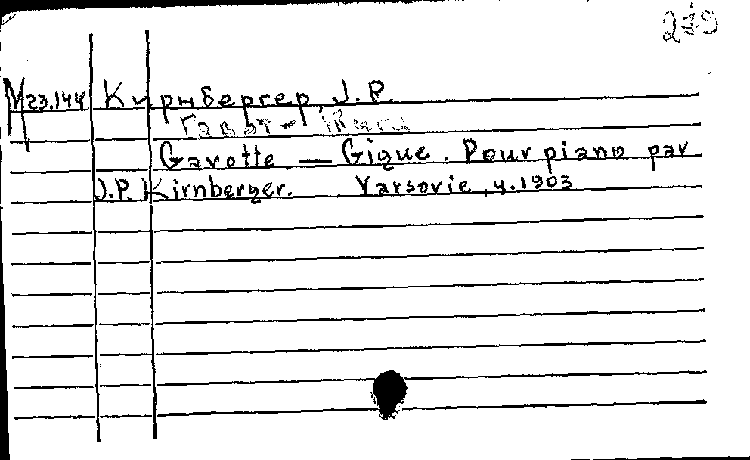 M 23.144 Кирнбергер, J. P.
Гавот – Жига
Gavotte — Gigue. Pour piano par
J.P. Kirnberger. Varsovie, y. 1903